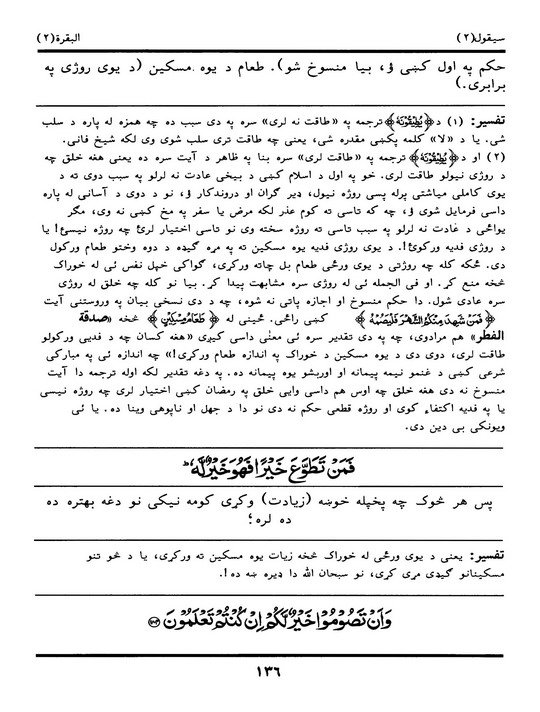 سيقول(٢) البقرة(٢)
حکم په اول کښی ؤ، بیا منسوخ شو). طعام د یوه مسکین (د یوی روژی په
برابری.)
تفسیر: (١) د﴿يُطِيْقُوْنَهٗ﴾ ترجمه په «طاقت نه لری» سره په دی سبب ده چه همزه له پاره د سلب
شی. یا د «لا» کلمه پکښی مقدره شی، یعنی چه طاقت تری سلب شوی وی لکه شیخ فانی.
(٢) او د﴿يُطِيْقُوْنَهٗ﴾ ترجمه په «طاقت لری» سره بنا په ظاهر د آیت سره ده یعنی هغه خلق چه
د روژی نیولو طاقت لری. خو په اول د اسلام کښی د بیخی عادت نه لرلو په سبب دوی ته د
یوی کاملی میاشتی پرله پسی روژه نیول، ډیر گران او دروندکار ؤ، نو د دوی د آسانی له پاره
داسی فرمایل شوی ؤ، چه که تاسی ته کوم عذر لکه مرض یا سفر په مخ کښی نه وی، مگر
یواځی د عادت نه لرلو په سبب تاسی ته روژه سخته وی نو تاسی اختیار لری چه روژه نیسی! یا
د روژی فدیه ورکوئ!. د یوی روژی فدیه یوه مسکین ته په مړه گیډه د دوه وختو طعام ورکول
دی. ځکه کله چه روژتی د یوی ورځی طعام بل چاته ورکړی، گواکی خپل نفس ئی له خوراک
څخه منع کړ. او فی الجمله ئی له روژی سره مشابهت پیدا کړ. بیا نو کله چه خلق له روژی
سره عادی شول. دا حکم منسوخ او اجازه پاتی نه شوه، چه د دی نسخی بیان په وروستنی آیت
﴿فَمَنْ شَهِدَ مِنْكُمُ الشَّهْرَ فَلْيَصُمْهُ﴾ کښی راځی. ځینی له ﴿طَعَامُ مِسْكِيْنٍ﴾ څخه «صدقة
الفطر» هم مرادوی، چه په دی تقدیر سره ئی معنٰی داسی کیږی «هغه کسان چه د فدیی ورکولو
طاقت لری، دوی دی د یوه مسکین د خوراک په اندازه طعام ورکړی!» چه اندازه ئی په مبارکی
شرعی کښی د غنمو نیمه پیمانه او اوربشو یوه پیمانه ده. په دغه تقدیر لکه اوله ترجمه دا آیت
منسوخ نه دی هغه خلق چه اوس هم داسی وایی خلق په رمضان کښی اختیار لری چه روژه نیسی
یا په فدیه اکتفاء کوی او روژه قطعی حکم نه دی نو دا د جهل او ناپوهی وینا ده. یا ئی
ویونکی بی دین دی.
فَمَنْ تَطَوَّعَ خَيْرًا فَهُوَ خَيْرٌ لَّهٗ ؕ
پس هر څوک چه پخپله خوښه (زیادت) وکړی کومه نیکی نو دغه بهتره ده
ده لره؛
تفسیر: یعنی د یوی ورځی له خوراک څخه زیات یوه مسکین ته ورکړی، یا د څو تنو
مسکینانو گیډی مړی کړی، نو سبحان الله دا ډیره ښه ده!.
وَاَنْ تَصُوْمُوْا خَيْرٌ لَّكُمْ اِنْ كُنْتُمْ تَعْلَمُوْنَ ۝١٨٤
١٣٦